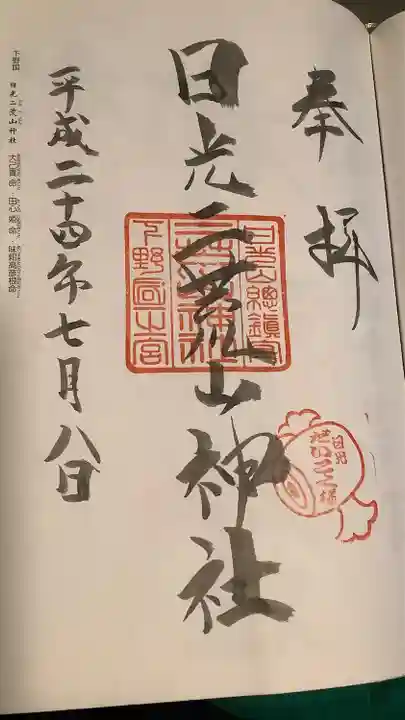 奉拝
日光二荒山神社
日光山總鎮守
二荒山神社
下野國一之宮
平成二十四年七月八日
下野国 日光二荒山神社 大己貴命・田心姫命・味耜高彦根命